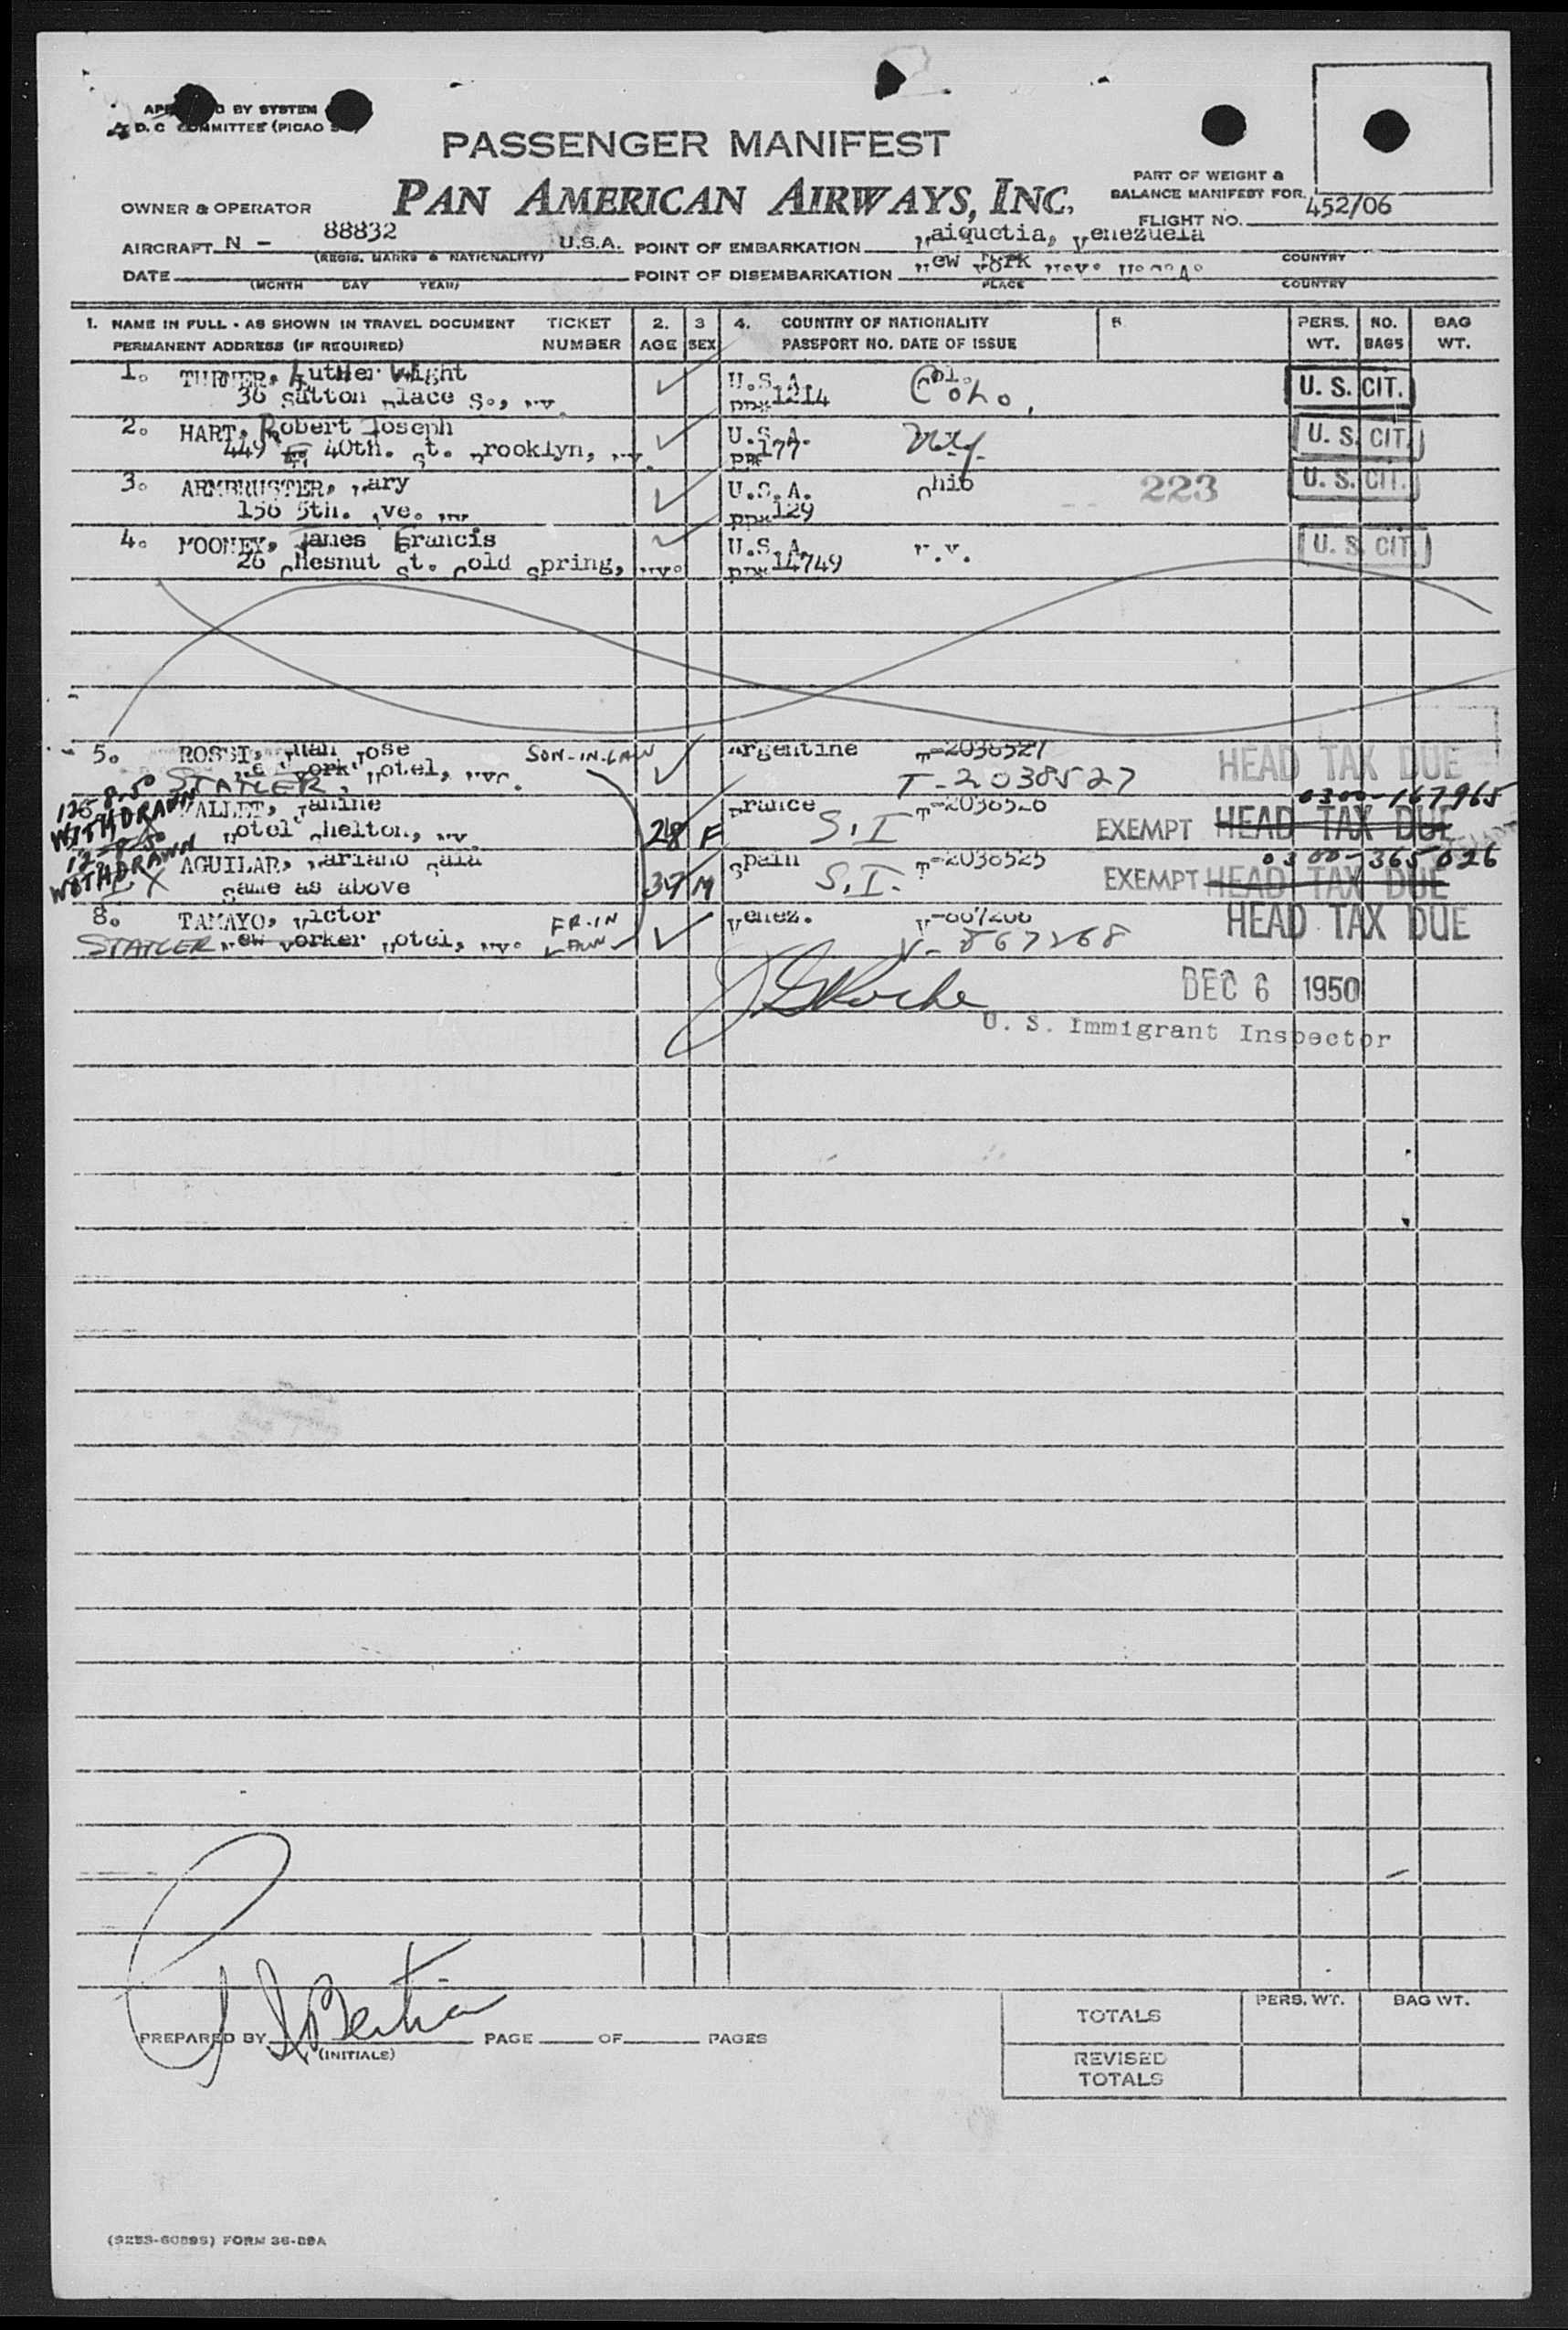 BY SYSTEM
D.C COMMITTEE (PICAO
PASSENGER MANIFEST
PAN AMERICAN AIRWAYS, INC.
PART OF WEIGHT &
BALANCE MANIFEST FOR
FLIGHT NO. 452/06
OWNER & OPERATOR
AIRCRAFT N - 88832 U.S.A. POINT OF EMBARKATION Maiquetia, Venezuela
(REGIS. MARKS & NATIONALITY) COUNTRY
DATE POINT OF DISEMBARKATION New York
(MONTH DAY YEAR) PLACE COUNTRY
1. NAME IN FULL - AS SHOWN IN TRAVEL DOCUMENT TICKET 2. 3 4. COUNTRY OF NATIONALITY 5 PERS. NO. BAG
PERMANENT ADDRESS (IF REQUIRED) NUMBER AGE SEX PASSPORT NO. DATE OF ISSUE WT. BAGS WT.
1. TURNER, Luther Wight U.S.A. U. S. CIT.
36 Sutton Place So., NY. 1214
2. HART, Robert Joseph U.S.A. U. S. CIT.
449 40th. St. Brooklyn, NY. 177
3. ARMBRUSTER, Mary U.S.A. Ohio 223 U. S. CIT.
156 5th. Ave. NY 129
4. MOONEY, James Francis U.S.A. N.Y. U. S. CIT.
26 Chesnut St. Cold Spring, NY. 14749
5. ROSSI, Juan Jose SON-IN-LAW Argentine T-2038527 HEAD TAX DUE
STATLER York Hotel, NYC. T-2038527
12-8-50 WITHDRAWN VALLET, Janine France T-2038526 0300-167965
Hotel Shelton, NY. 28 F S.I EXEMPT HEAD TAX DUE
12-8-50 WITHDRAWN AGUILAR, Mariano Spain T-2038525 0300-365026
Same as above 37 M S.I. EXEMPT HEAD TAX DUE
8. TAMAYO, Victor FR-IN Venez. V-867268 HEAD TAX DUE
STATLER New Yorker Hotel, NY. LAW V-867268
DEC 6 1950
U. S. Immigrant Inspector
PREPARED BY PAGE OF PAGES
(INITIALS)
TOTALS PERS. WT. BAG WT.
REVISED
TOTALS